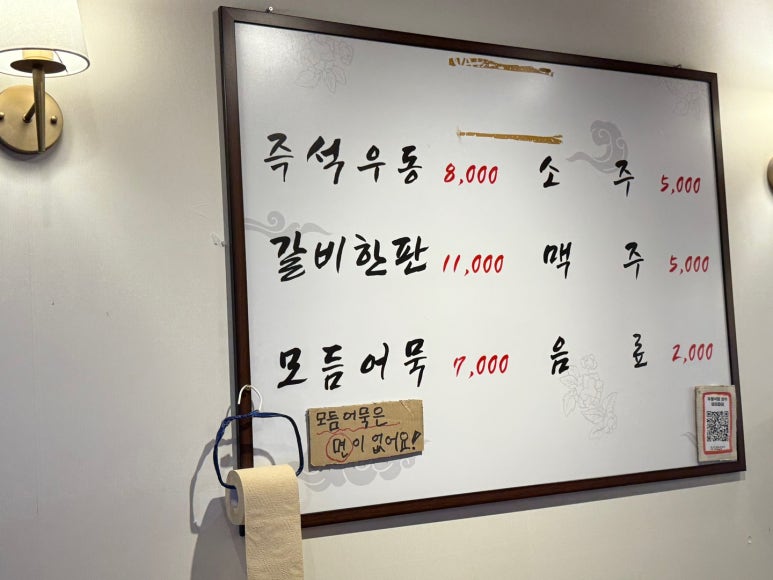 즉석우동 8,000
갈비한판 11,000
모듬어묵 7,000
소 주 5,000
맥 주 5,000
음 료 2,000
모듬어묵은
면이 없어요!